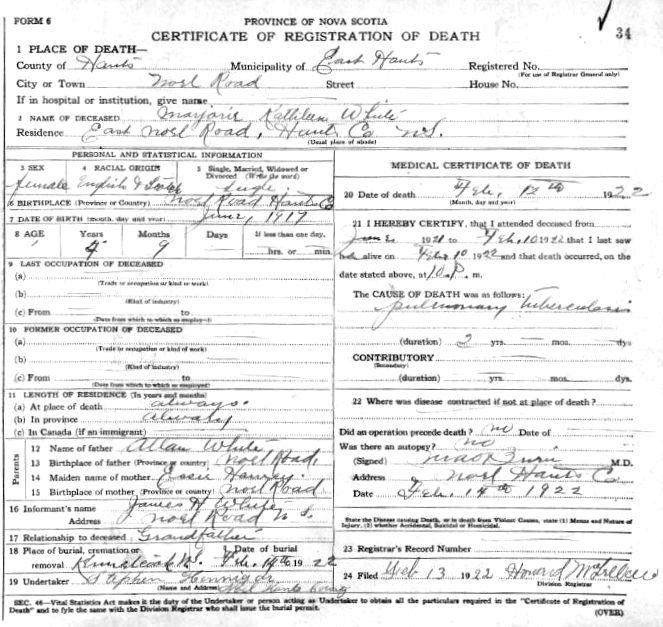 FORM 6
PROVINCE OF NOVA SCOTIA
34
CERTIFICATE OF REGISTRATION OF DEATH
1 PLACE OF DEATH—
County of Hants Municipality of East Hants Registered No.
(For use of Registrar General only)
City or Town Noel Road Street House No.
If in hospital or institution, give name
2 NAME OF DECEASED Marjorie Kathleen White
Residence East Noel Road, Hants Co N.S.
(Usual place of abode)
PERSONAL AND STATISTICAL INFORMATION
3 SEX 4 RACIAL ORIGIN 5 Single, Married, Widowed or Divorced (Write the word)
Female English & Single
6 BIRTHPLACE (Province or Country) Noel Road Hants Co
7 DATE OF BIRTH (month, day and year) June, 1917
8 AGE Years Months Days If less than one day,
4 9 hrs. or min.
9 LAST OCCUPATION OF DECEASED
(a)
(Trade or occupation or kind of work)
(b)
(Kind of industry)
(c) From to
(Date from which to which so employed)
10 FORMER OCCUPATION OF DECEASED
(a)
(Trade or occupation or kind of work)
(b)
(Kind of industry)
(c) From to
(Date from which to which so employed)
11 LENGTH OF RESIDENCE (In years and months)
(a) At place of death always
(b) In province always
(c) In Canada (if an immigrant)
Parents
12 Name of father Allan White
13 Birthplace of father (Province or country) Noel Road,
14 Maiden name of mother Essie
15 Birthplace of mother (Province or country) Noel Road
16 Informant's name James H White
Address Noel Road N S
17 Relationship to deceased Grandfather
18 Place of burial, cremation or removal Date of burial
Feb. 14th 1922
19 Undertaker Stephen
(Name and Address)
MEDICAL CERTIFICATE OF DEATH
20 Date of death Feb. 12th 1922
(Month, day and year)
21 I HEREBY CERTIFY, that I attended deceased from
June 1921 to Feb. 10 1922 that I last saw
alive on Feb 10 1922 and that death occurred, on
the date stated above, at 10 P. m.
The CAUSE OF DEATH was as follows:
pulmonary Tuberculosis
(duration) 2 yrs. mos. dys.
CONTRIBUTORY
(Secondary)
(duration) yrs. mos. dys.
22 Where was disease contracted if not at place of death?
Did an operation precede death? no Date of
Was there an autopsy? no
(Signed) M.D.
Address Noel Hants Co.
Date Feb. 14th 1922
State the Disease causing Death, or in death from Violent Causes, state (1) Means and Nature of Injury, (2) whether Accidental, Suicidal or Homicidal.
23 Registrar's Record Number
24 Filed Feb 13 1922 Howard
Division Registrar
SEC. 46—Vital Statistics Act makes it the duty of the Undertaker or person acting as Undertaker to obtain all the particulars required in the "Certificate of Registration of
Death" and to fyle the same with the Division Registrar who shall issue the burial permit. (OVER)